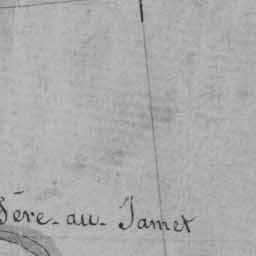 Père-au-Jamet